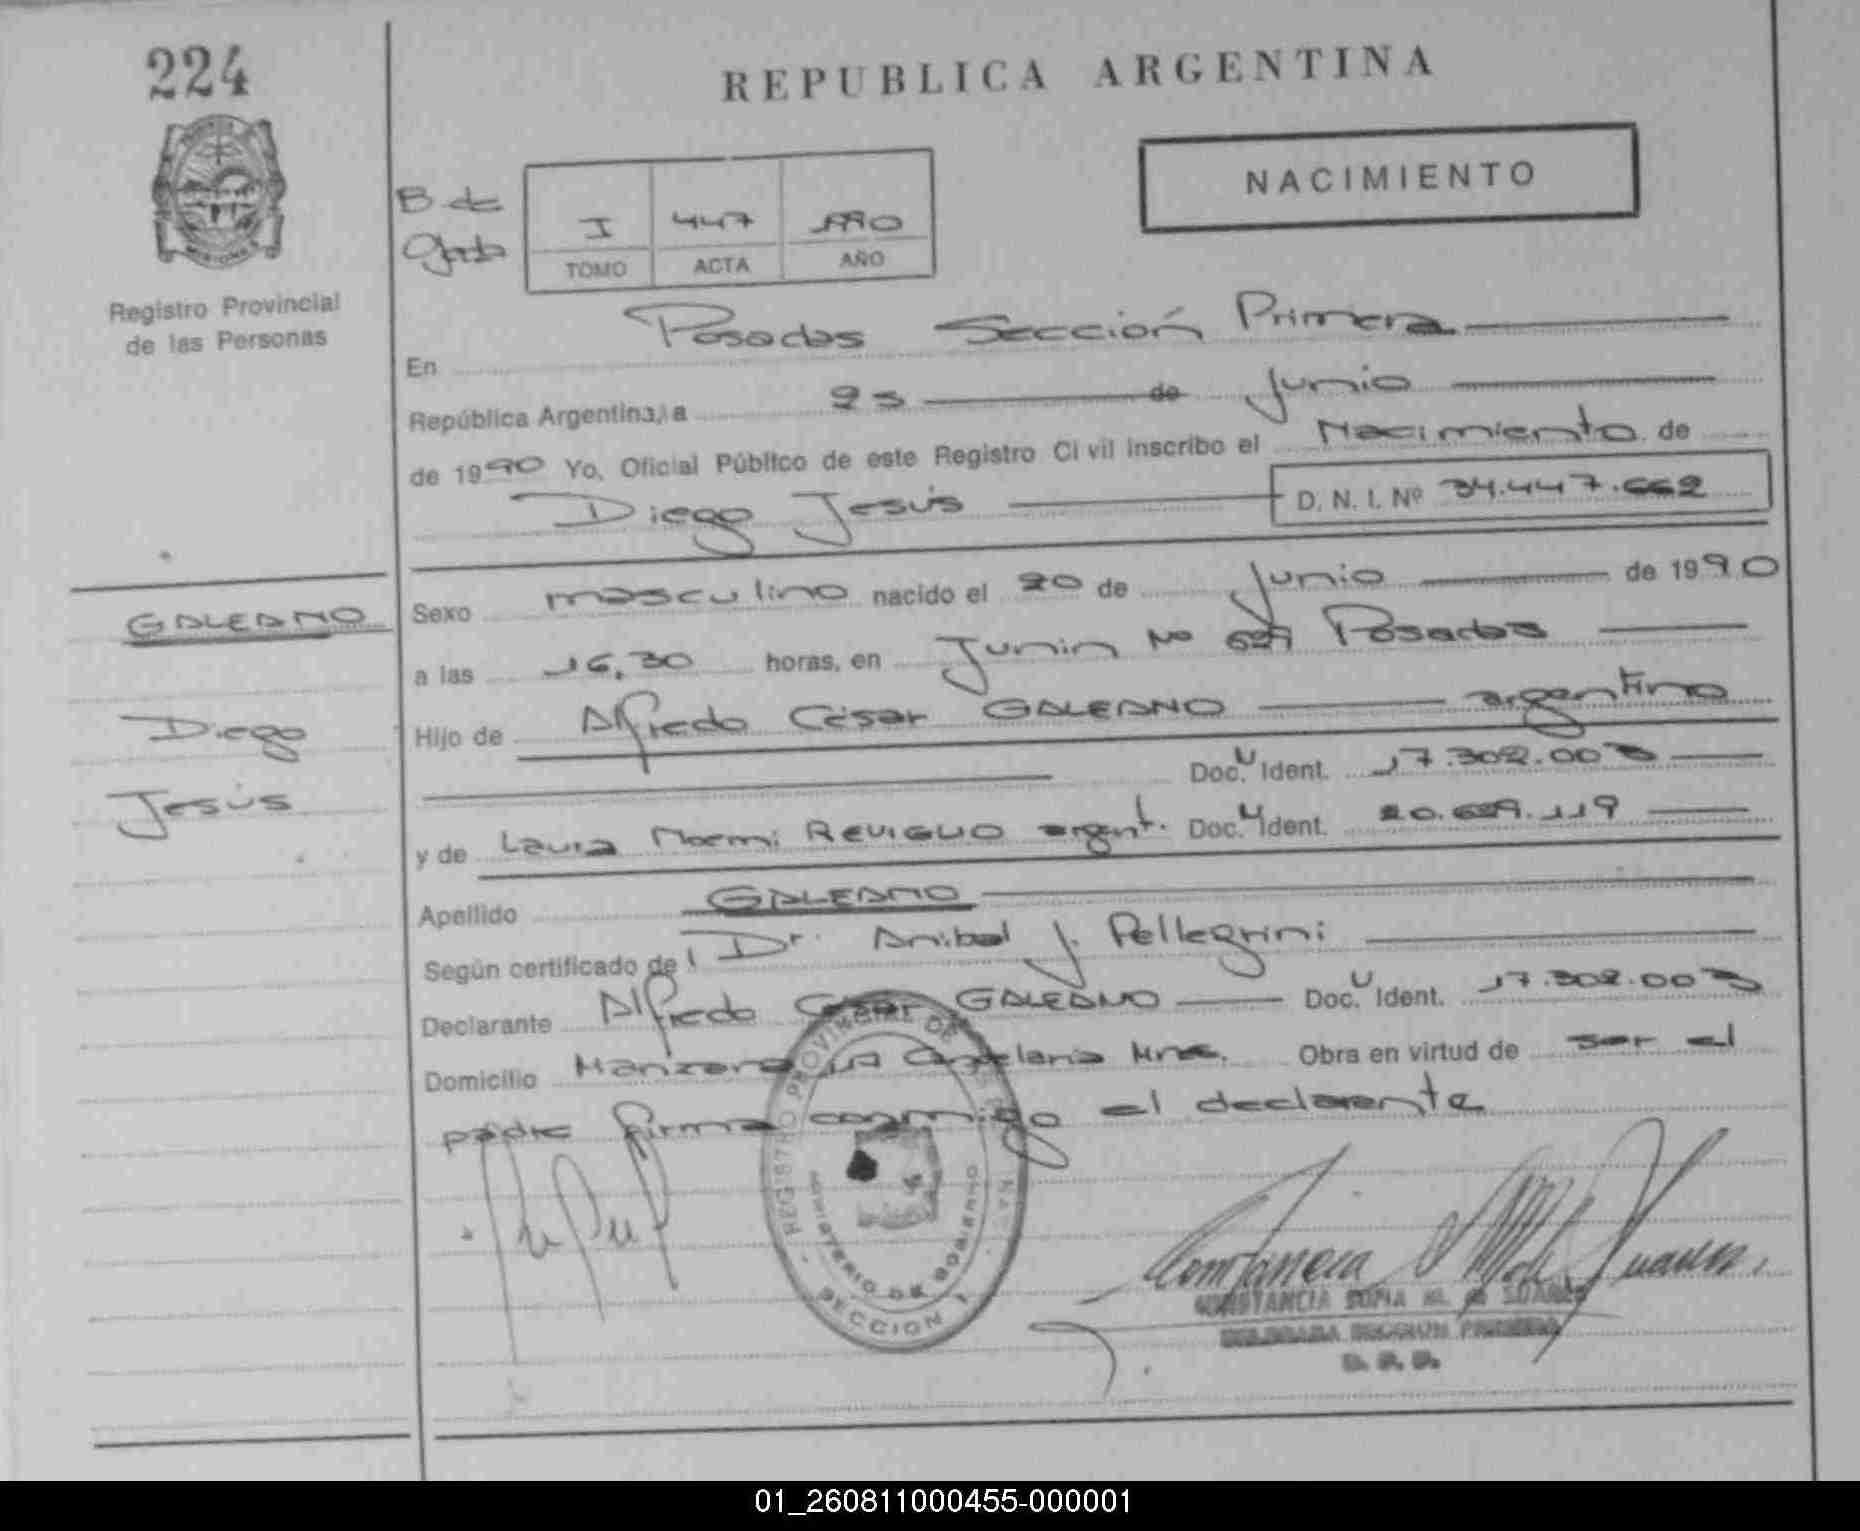 224
REPUBLICA ARGENTINA
NACIMIENTO
B de
I 447 1990
TOMO ACTA AÑO
Registro Provincial
de las Personas
En Posadas Sección Primera
República Argentina, a 25 de Junio
de 1990 Yo, Oficial Público de este Registro Civil inscribo el Nacimiento de
Diego Jesús D. N. I. Nº 34.447.662
GALEANO
Diego
Jesús
Sexo masculino nacido el 20 de Junio de 1990
a las 16,30 horas, en Junin Nº Posadas
Hijo de Alfredo César GALEANO argentino
Doc. U Ident. 17.302.003
y de Laura Noemi REVIGLIO argent. Doc. U Ident. 20.689.119
Apellido GALEANO
Según certificado del Dr. Anibal J. Pellegrini
Declarante Alfredo César GALEANO Doc. U Ident. 17.302.003
Domicilio Manzana Candelaria Mnes. Obra en virtud de ser el
padre firma conmigo el declarante
REGISTRO PROVINCIAL DE LAS PERSONAS
MINISTERIO DE GOBIERNO
SECCION 1
Constancia M. de Suarez
CONSTANCIA SOFIA M. de SUAREZ
DELEGADA SECCION PRIMERA
01_260811000455-000001